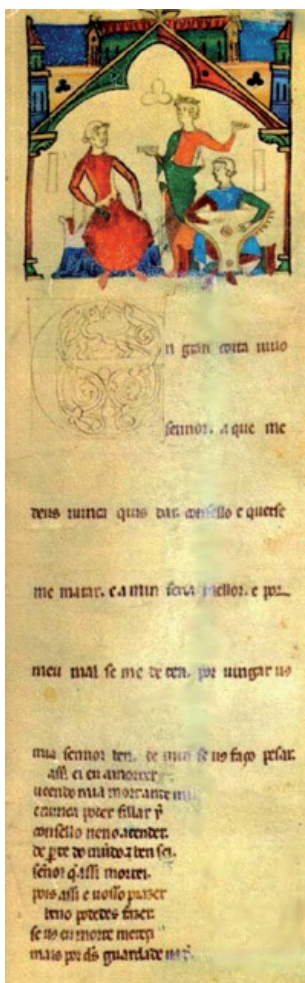 n gran coita uiuo
sennor. a que me
deus nunca quis dar. consello e querse
me matar. e a min seria mellor. e por
meu mal se me de ten. por uingar uos
mia sennor ben. de min se uos faço pesar.
assi ei eu a morrer
ueendo mia mort ante mi.
e nunca poder fillar y
consello neno atender.
de pte do mũdo. ⁊ ben sei.
señor q̃ assi morrei.
pois assi e uosso prazer
beno podedes fazer.
se uos eu morte mereçi
mais por ds̃ guardade uos y.